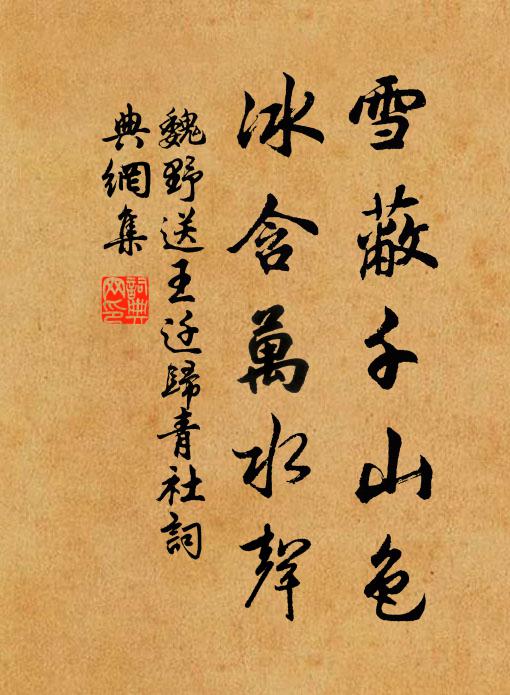 雪蔽千山色
冰含萬水聲
魏野送王迁歸青社詞
典網集
詞典
网印